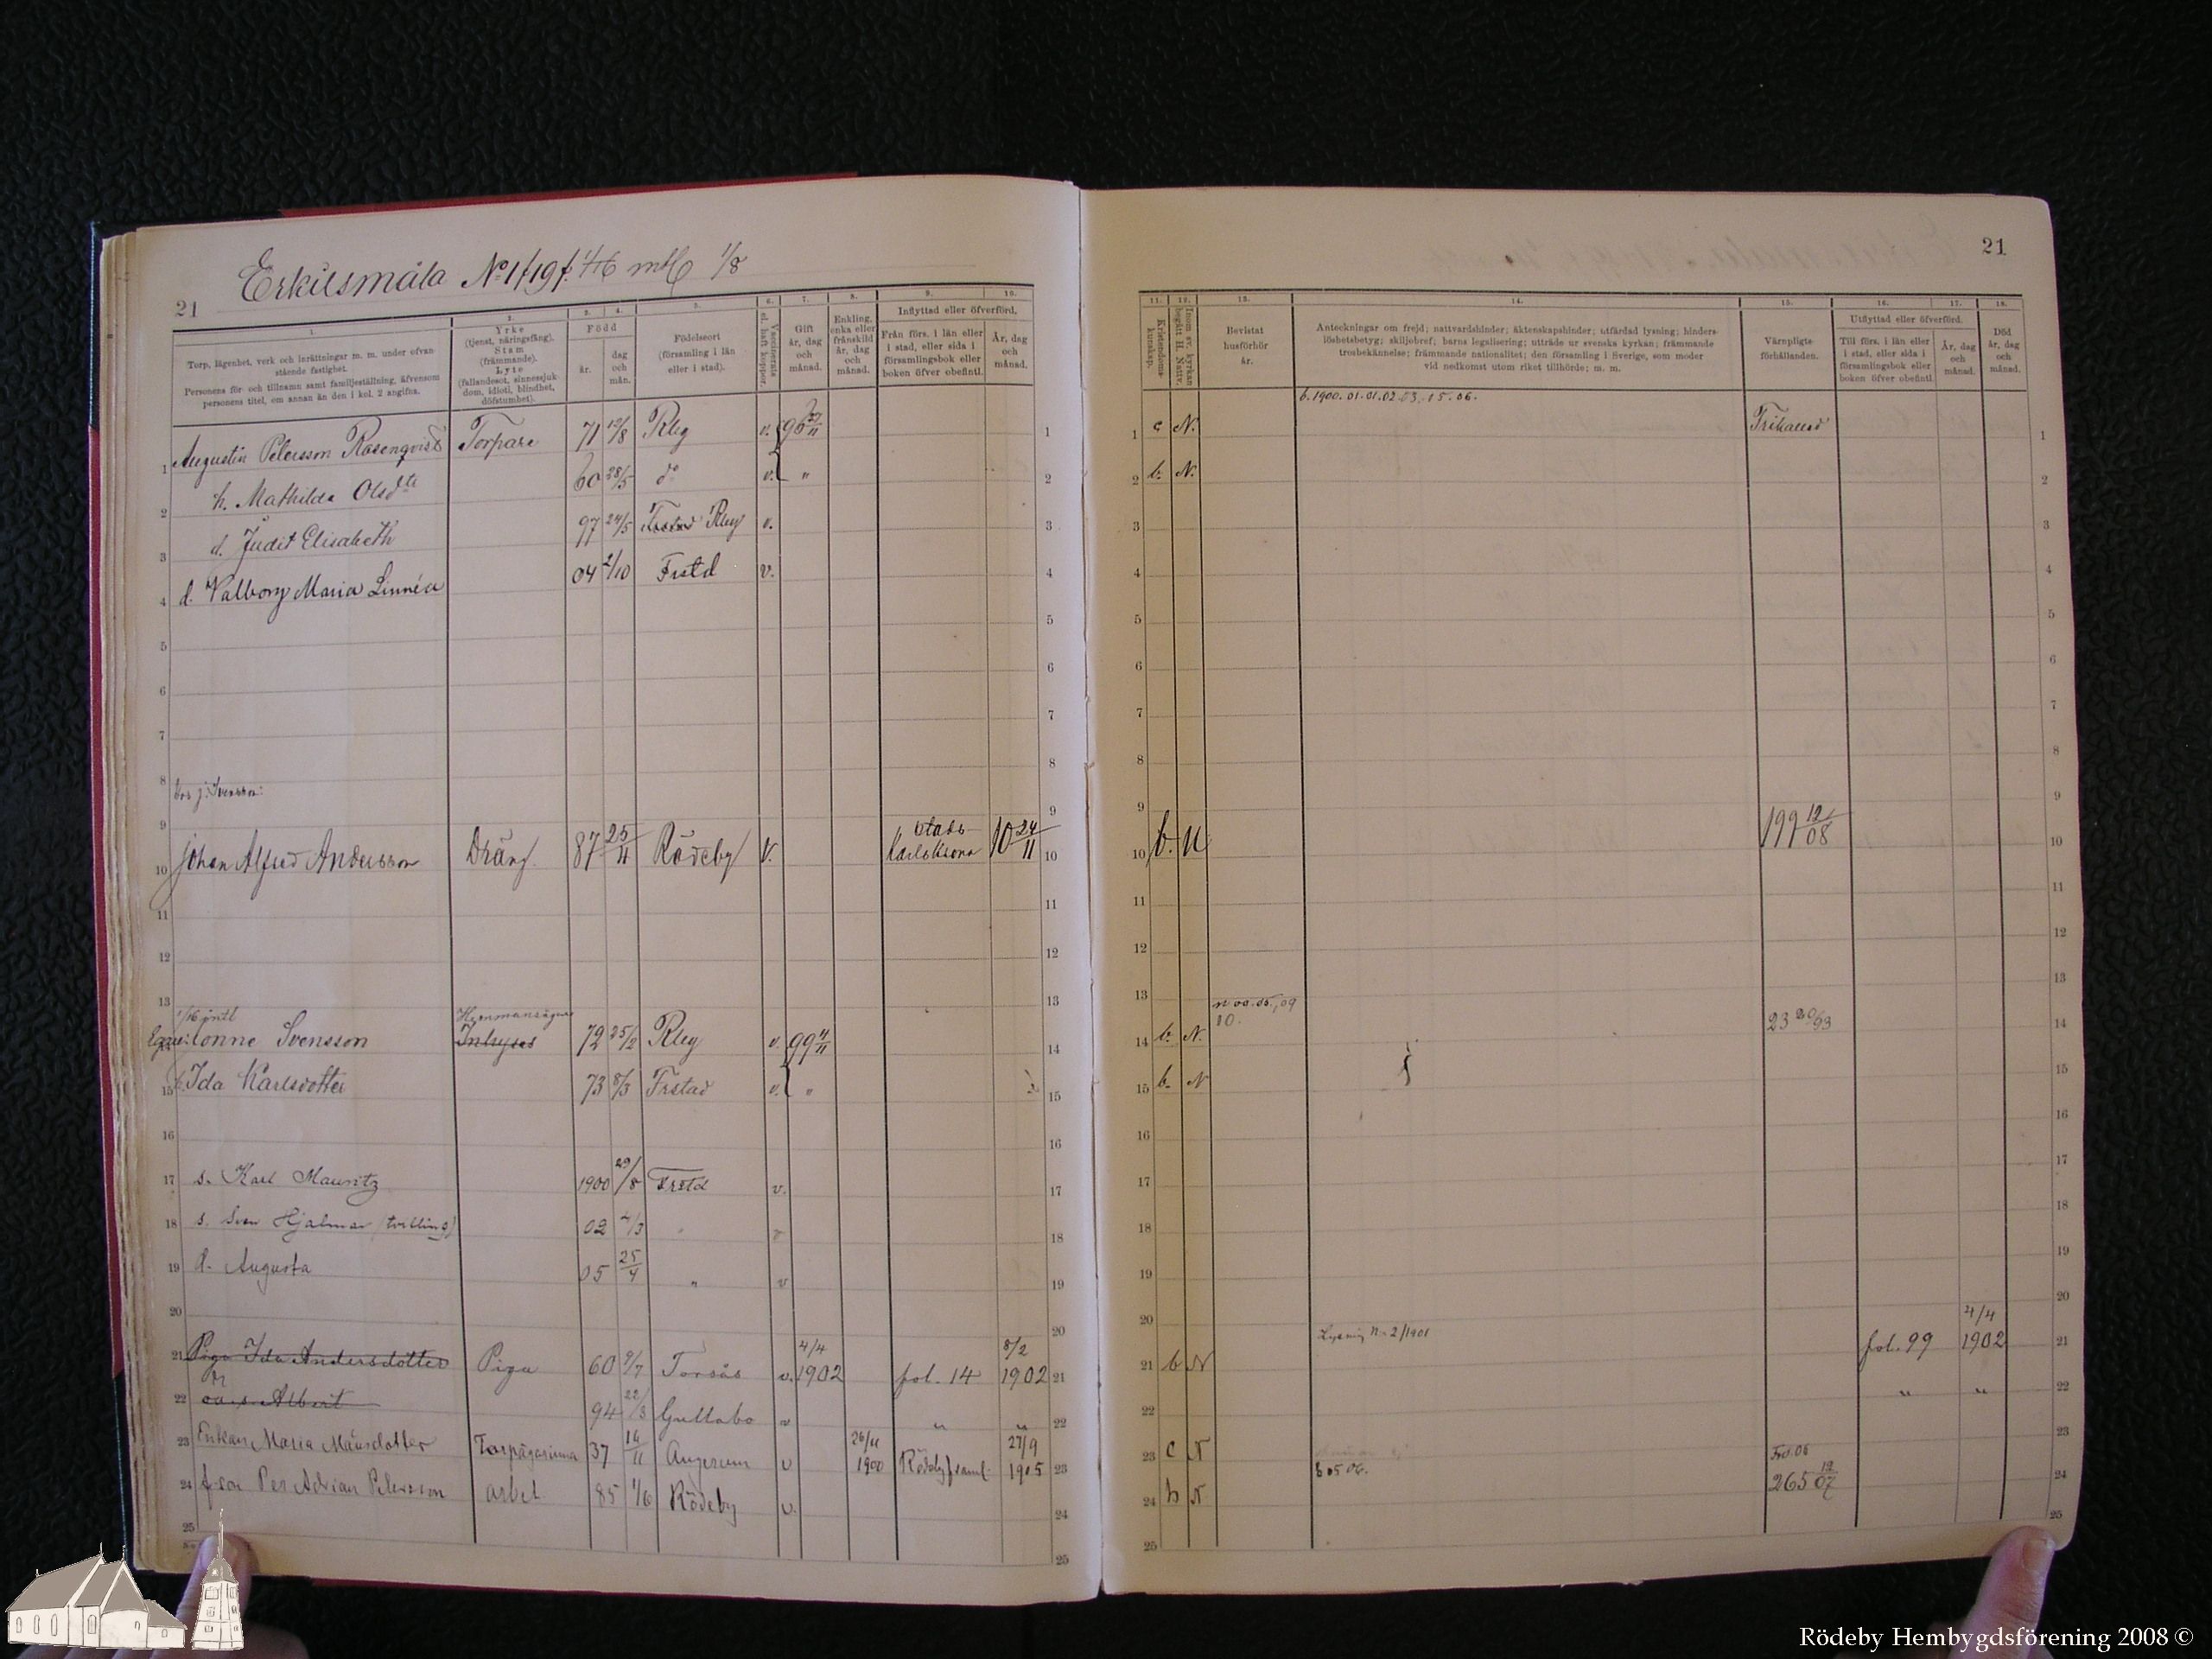 Erkilsmåla No 1 f. 19 f. 4/16 mtl 1/8
21
1. 2. 3. 4. 5. 6. 7. 8. 9. 10.
Torp, lägenhet, verk och inrättningar m. m. under ofvanstående fastighet.
Personens för- och tillnamn samt familjeställning, äfvensom personens titel, om annan än den i kol. 2 angifna.
Yrke (tjenst, näringsfång). Stam (främmande). Lyte (fallandesot, sinnessjukdom, idioti, blindhet, döfstumhet).
Född
år.
dag och mån.
Födelseort (församling i län eller i stad).
Vaccinerats el. haft koppor.
Gift år, dag och månad.
Enkling, enka eller frånskild år, dag och månad.
Inflyttad eller öfverförd.
Från förs. i län eller i stad, eller sida i församlingsbok eller boken öfver obefintl.
År, dag och månad.
1 Augustin Petersson Rosenqvist Torpare 71 12/8 Rby v. 96 27/11 1
2 h. Mathilda Olsdtr 60 28/5 do v. " 2
3 d. Judit Elisabeth 97 24/5 Frstad Rby v. 3
4 d. Valborg Maria Linnéa 04 2/10 Frstd v. 4
5 5
6 6
7 7
8 8
hos J. Svensson
9 9
10 Johan Alfred Andersson Dräng 87 25/11 Rödeby v. Stads Karlskrona 10 24/11 10
11 11
12 12
13 13
1/16 mtl Hemmansägare
Jonne Svensson Inhyses 72 25/2 Rby v. 99 4/11 14
15 h. Ida Karlsdotter 73 8/3 Frstad v. " 15
16 16
17 s. Karl Mauritz 1900 29/8 Frstd v. 17
18 s. Sven Hjalmar (tvilling) 02 4/3 " v 18
19 d. Augusta 05 25/4 " v 19
20 20
21 Piga Ida Andersdotter Piga 60 9/7 Torsås v. 4/4 1902 fol. 14 8/2 1902 21
22 oä. s. Albert 94 22/3 Gullabo v " " 22
23 Enkan Maria Månsdotter Torpägarinna 37 14/11 Augerum v 26/11 1900 Rödeby framl. 27/9 1905 23
24 f. son Per Adrian Petersson arbet. 85 1/6 Rödeby v. 24
25 25
21
11. 12. 13. 14. 15. 16. 17. 18.
Kristendomskunskap.
Inom sv. kyrkan begått H. Nattv.
Bevistat husförhör år.
Anteckningar om frejd; nattvardshinder; äktenskapshinder; utfärdad lysning; hinderslöshetsbetyg; skiljobref; barns legalisering; utträde ur svenska kyrkan; främmande trosbekännelse; främmande nationalitet; den församling i Sverige, som moder vid nedkomst utom riket tillhörde; m. m.
Värnpligtsförhållanden.
Utflyttad eller öfverförd.
Till förs. i län eller i stad, eller sida i församlingsbok eller boken öfver obefintl.
År, dag och månad.
Död år, dag och månad.
b. 1900. 01. 01. 02. 03. 05. 06.
1 c N. Frikallad 1
2 b. N. 2
3 3
4 4
5 5
6 6
7 7
8 8
9 9
10 b. N 199 12/08 10
11 11
12 12
13 n 00. 05, 09 13
10.
14 b. N. 23 20/93 14
15 b. N 15
16 16
17 17
18 18
19 19
20 20
21 b N Lysning N. 2/1901 fol. 99 4/4 1902 21
22 " " 22
23 c N 23
24 b N b 05 06. 265 12/07 24
25 25
Rödeby Hembygdsförening 2008 ©